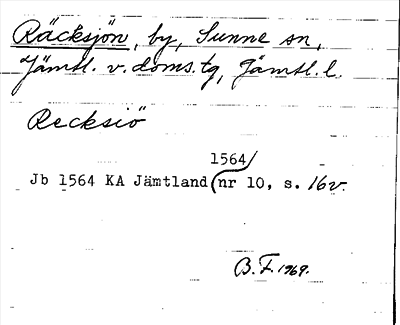 Räcksjön, by, Sunne sn,
Jämtl. v. doms.tg, Jämtl. l.
Recksiö
1564/
Jb 1564 KA Jämtland (nr 10, s. 16v.
B.F. 1969.